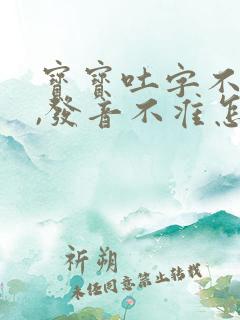 寶寶吐字不
,發音不准怎
祈朔
未经同意禁止转载